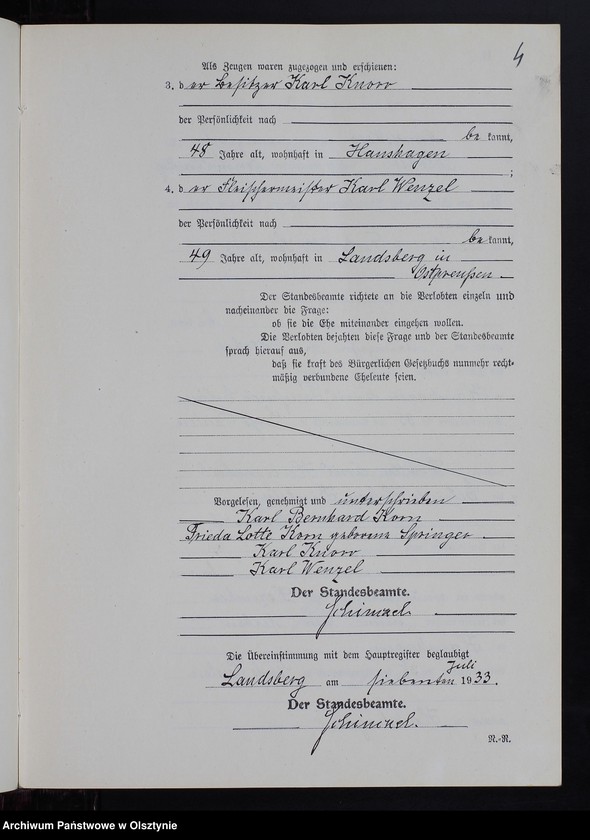 4
Als Zeugen waren zugezogen und erschienen:
3. der Besitzer Karl Knorr
der Persönlichkeit nach
be kannt,
48 Jahre alt, wohnhaft in Hanshagen
;
4. der Fleischermeister Karl Wenzel
der Persönlichkeit nach
be kannt,
49 Jahre alt, wohnhaft in Landsberg in
Ostpreußen
Der Standesbeamte richtete an die Verlobten einzeln und
nacheinander die Frage:
ob sie die Ehe miteinander eingehen wollen.
Die Verlobten bejahten diese Frage und der Standesbeamte
sprach hierauf aus,
daß sie kraft des Bürgerlichen Gesetzbuchs nunmehr recht-
mäßig verbundene Eheleute seien.
Vorgelesen, genehmigt und unterschrieben
Karl Bernhard Korn
Frieda Lotte Korn geborene Springer
Karl Knorr
Karl Wenzel
Der Standesbeamte.
Schimack
Die Übereinstimmung mit dem Hauptregister beglaubigt
Juli
Landsberg am siebenten 1933.
Der Standesbeamte.
Schimack.
R.-R.
Archiwum Państwowe w Olsztynie